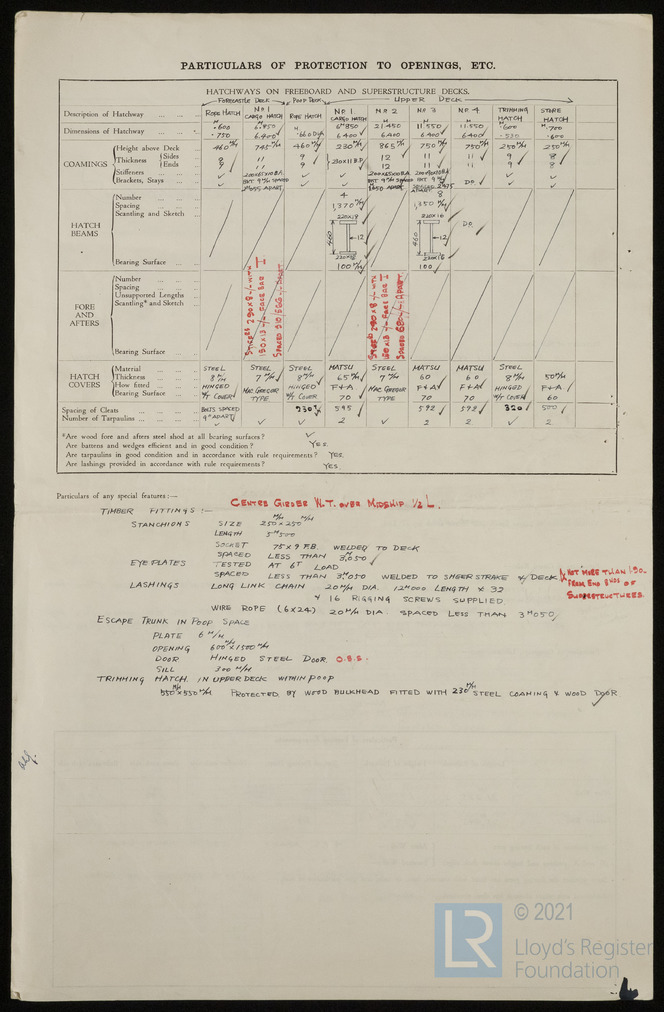 PARTICULARS OF PROTECTION TO OPENINGS, ETC.
HATCHWAYS ON FREEBOARD AND SUPERSTRUCTURE DECKS.
FORECASTLE DECK POOP DECK UPPER DECK
Description of Hatchway ROPE HATCH No 1 CARGO HATCH ROPE HATCH No 1 CARGO HATCH No 2 No 3 No 4 TRIMMING HATCH STORE HATCH
Dimensions of Hatchway .600 .750 6.850 6.400 .660 DIA 6.850 6.400 21.450 6.400 11.550 6.400 11.550 6.400 .600 .530 .700 .600
COAMINGS
Height above Deck 460 M/M 745 M/M 460 M/M 230 M/M 865 M/M 750 M/M 750 M/M 250 M/M 250 M/M
Thickness Sides 8 11 9 230x11 B.P 12 11 11 9 8
Ends 11 9 12 11 11 9 8
Stiffeners
Brackets, Stays DO.
HATCH BEAMS
Number 4 8
Spacing 1,370 M/M 1,350 M/M
Scantling and Sketch 220x18 460 12 220x18 220x16 460 12 220x16 DO.
Bearing Surface 100 M/M 100
FORE AND AFTERS
Number
Spacing
Unsupported Lengths
Scantling* and Sketch
Bearing Surface
HATCH COVERS
Material STEEL STEEL STEEL MATSU STEEL MATSU MATSU STEEL
Thickness 8 M/M 7 M/M 8 M/M 65 M/M 7 M/M 60 60 8 M/M 50 M/M
How fitted HINGED MAC GREGOR TYPE HINGED F+A MAC GREGOR TYPE F+A F+A HINGED F+A
Bearing Surface W/T COVER W/T COVER 70 70 70 W/T COVER 60
Spacing of Cleats BOLTS SPACED 9" APART 595 592 592 320 500
Number of Tarpaulins 2 2 2 2
*Are wood fore and afters steel shod at all bearing surfaces?
Are battens and wedges efficient and in good condition? YES.
Are tarpaulins in good condition and in accordance with rule requirements? YES.
Are lashings provided in accordance with rule requirements? YES.
Particulars of any special features:—
CENTRE GIRDER W.T. OVER MIDSHIP 1/2 L.
TIMBER FITTINGS :-
STANCHIONS SIZE 250 M/M x 250 M/M
LENGTH 5M500
SOCKET 75 x 9 F.B. WELDED TO DECK
SPACED LESS THAN 3M,050
EYE PLATES TESTED AT 6T LOAD
SPACED LESS THAN 3M050 WELDED TO SHEER STRAKE & DECK
NOT MORE THAN 1.90. FROM END BHDS OF SUPERSTRUCTURES.
LASHINGS LONG LINK CHAIN 20 M/M DIA. 12M000 LENGTH x 32
& 16 RIGGING SCREWS SUPPLIED.
WIRE ROPE (6x24) 20 M/M DIA. SPACED LESS THAN 3M050
ESCAPE TRUNK IN POOP SPACE
PLATE 6 M/M
OPENING 600 M/M x 1500 M/M
DOOR HINGED STEEL DOOR O.B.S.
SILL 300 M/M
TRIMMING HATCH. IN UPPER DECK WITHIN POOP
550 M/M x 530 M/M PROTECTED BY WOOD BULKHEAD FITTED WITH 230 M/M STEEL COAMING & WOOD DOOR
LR © 2021
Lloyd's Register
Foundation